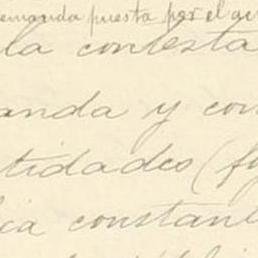 emanda puesta por el
la contesta
anda y con
tidades (f
ia constan